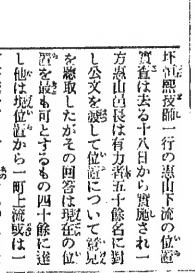 技師一行の惠山下流の位置
實査は去る十八日から實施され一
方惠山邑長は有力者五十餘名に對
し公文を發して位置について意見
を聽取したがその回答は現在の位
置を最も可とするもの四十餘名に達
し他は現位置から一町上流或は一